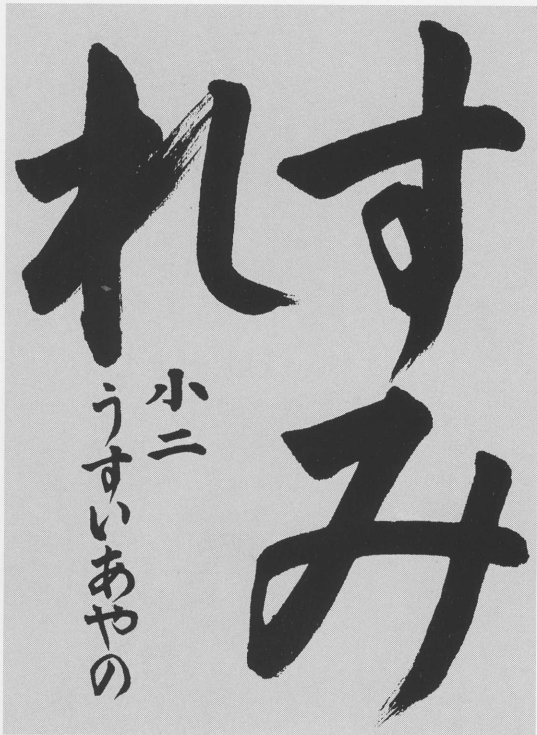 すみ
れ
小二
うすいあやの